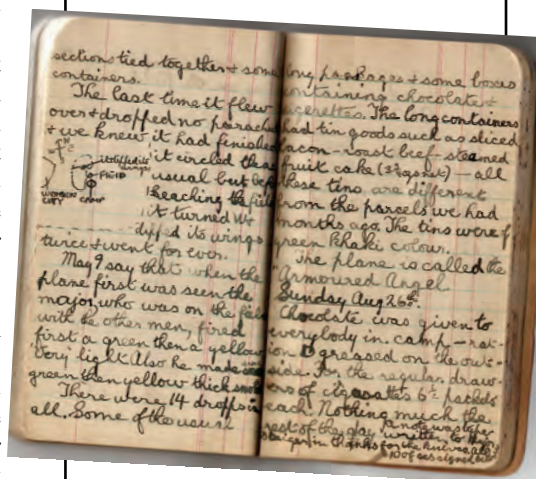 sections tied together + some
containers.
The last time it flew
over + dropped no parachutes
+ we knew it had finished
it circled the
usual but
Reaching the field
it turned
dipped its wings
FIELD
CITY CAMP
twice + went for ever.
May 9 say that when the
plane first was seen the
major, who was on the field
with the other men, fired
first a green then a yellow
Very light. Also he made
green then yellow thick smoke
There were 14 dropps in
all. Some of the usual
long packages + some boxes
containing chocolate +
cigerettes. The long containers
had tin goods such as sliced
bacon - roast beef - steamed
fruit cake - all
these tins are different
from the parcels we had
months ago. The tins were of
green Khaki colour.
The plane is called the
"Armoured Angel.
Sunday Aug 26th.
Chocolate was given to
everybody in camp - rat-
ion D greased on the out-
side. For the regular draw-
ers of cigarettes 6 packets
each. Nothing much the
rest of the day a note was
written to
in thanks for the